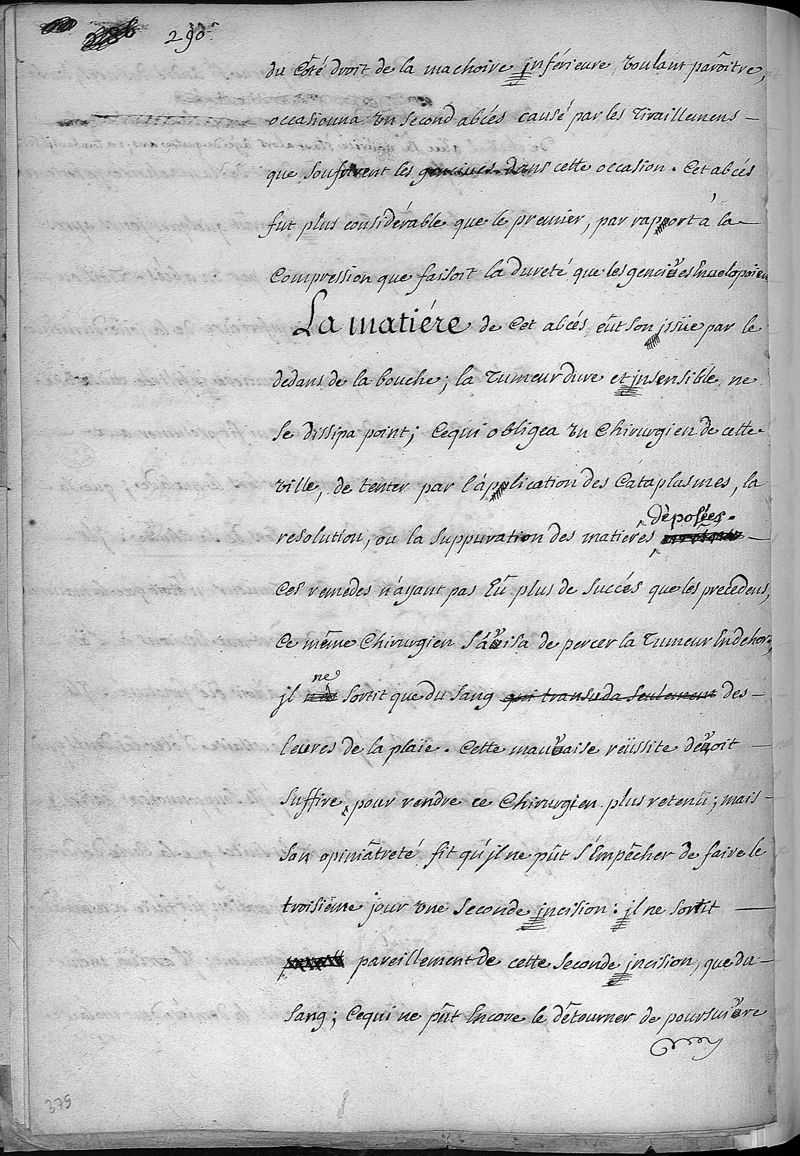 290
du côté droit de la machoire jnférieure, voulant parôitre,
occasionna un second abcés causé par les Tiraillemens
que soufrirent les gencives dans cette occasion. Cet abcés
fut plus considérable que le premier, par rapport à la
Compression que faisoit la dureté que les gencives Envelopoient
La matiére de Cet abcés, eût son jssüe par le
dedans de la bouche; la Tumeur dure et jnsensible, ne
se dissipa point; Cequi obligea un Chirurgien de cette
ville, de tenter par l'application des Cataplasmes, la
déposées.
resolution, ou la suppuration des matieres
Ces remedes n'ayant pas Eû plus de succés que les precedens,
Ce même Chirurgien s'avisa de percer la Tumeur Endehors,
ne
jl sortit que du sang qui transuda seulement des
leures de la plaïe. Cette mauvaise reüssite devoit
suffire, pour rendre ce Chirurgien plus retenû; mais
son opiniâtreté fit qu'jl ne pût s'Empêcher de faire le
troisiéme jour une seconde jncision: jl ne sortit
pareillement de cette seconde jncision, que du
sang; Cequi ne pût Encore le détourner de poursuivre
375
8